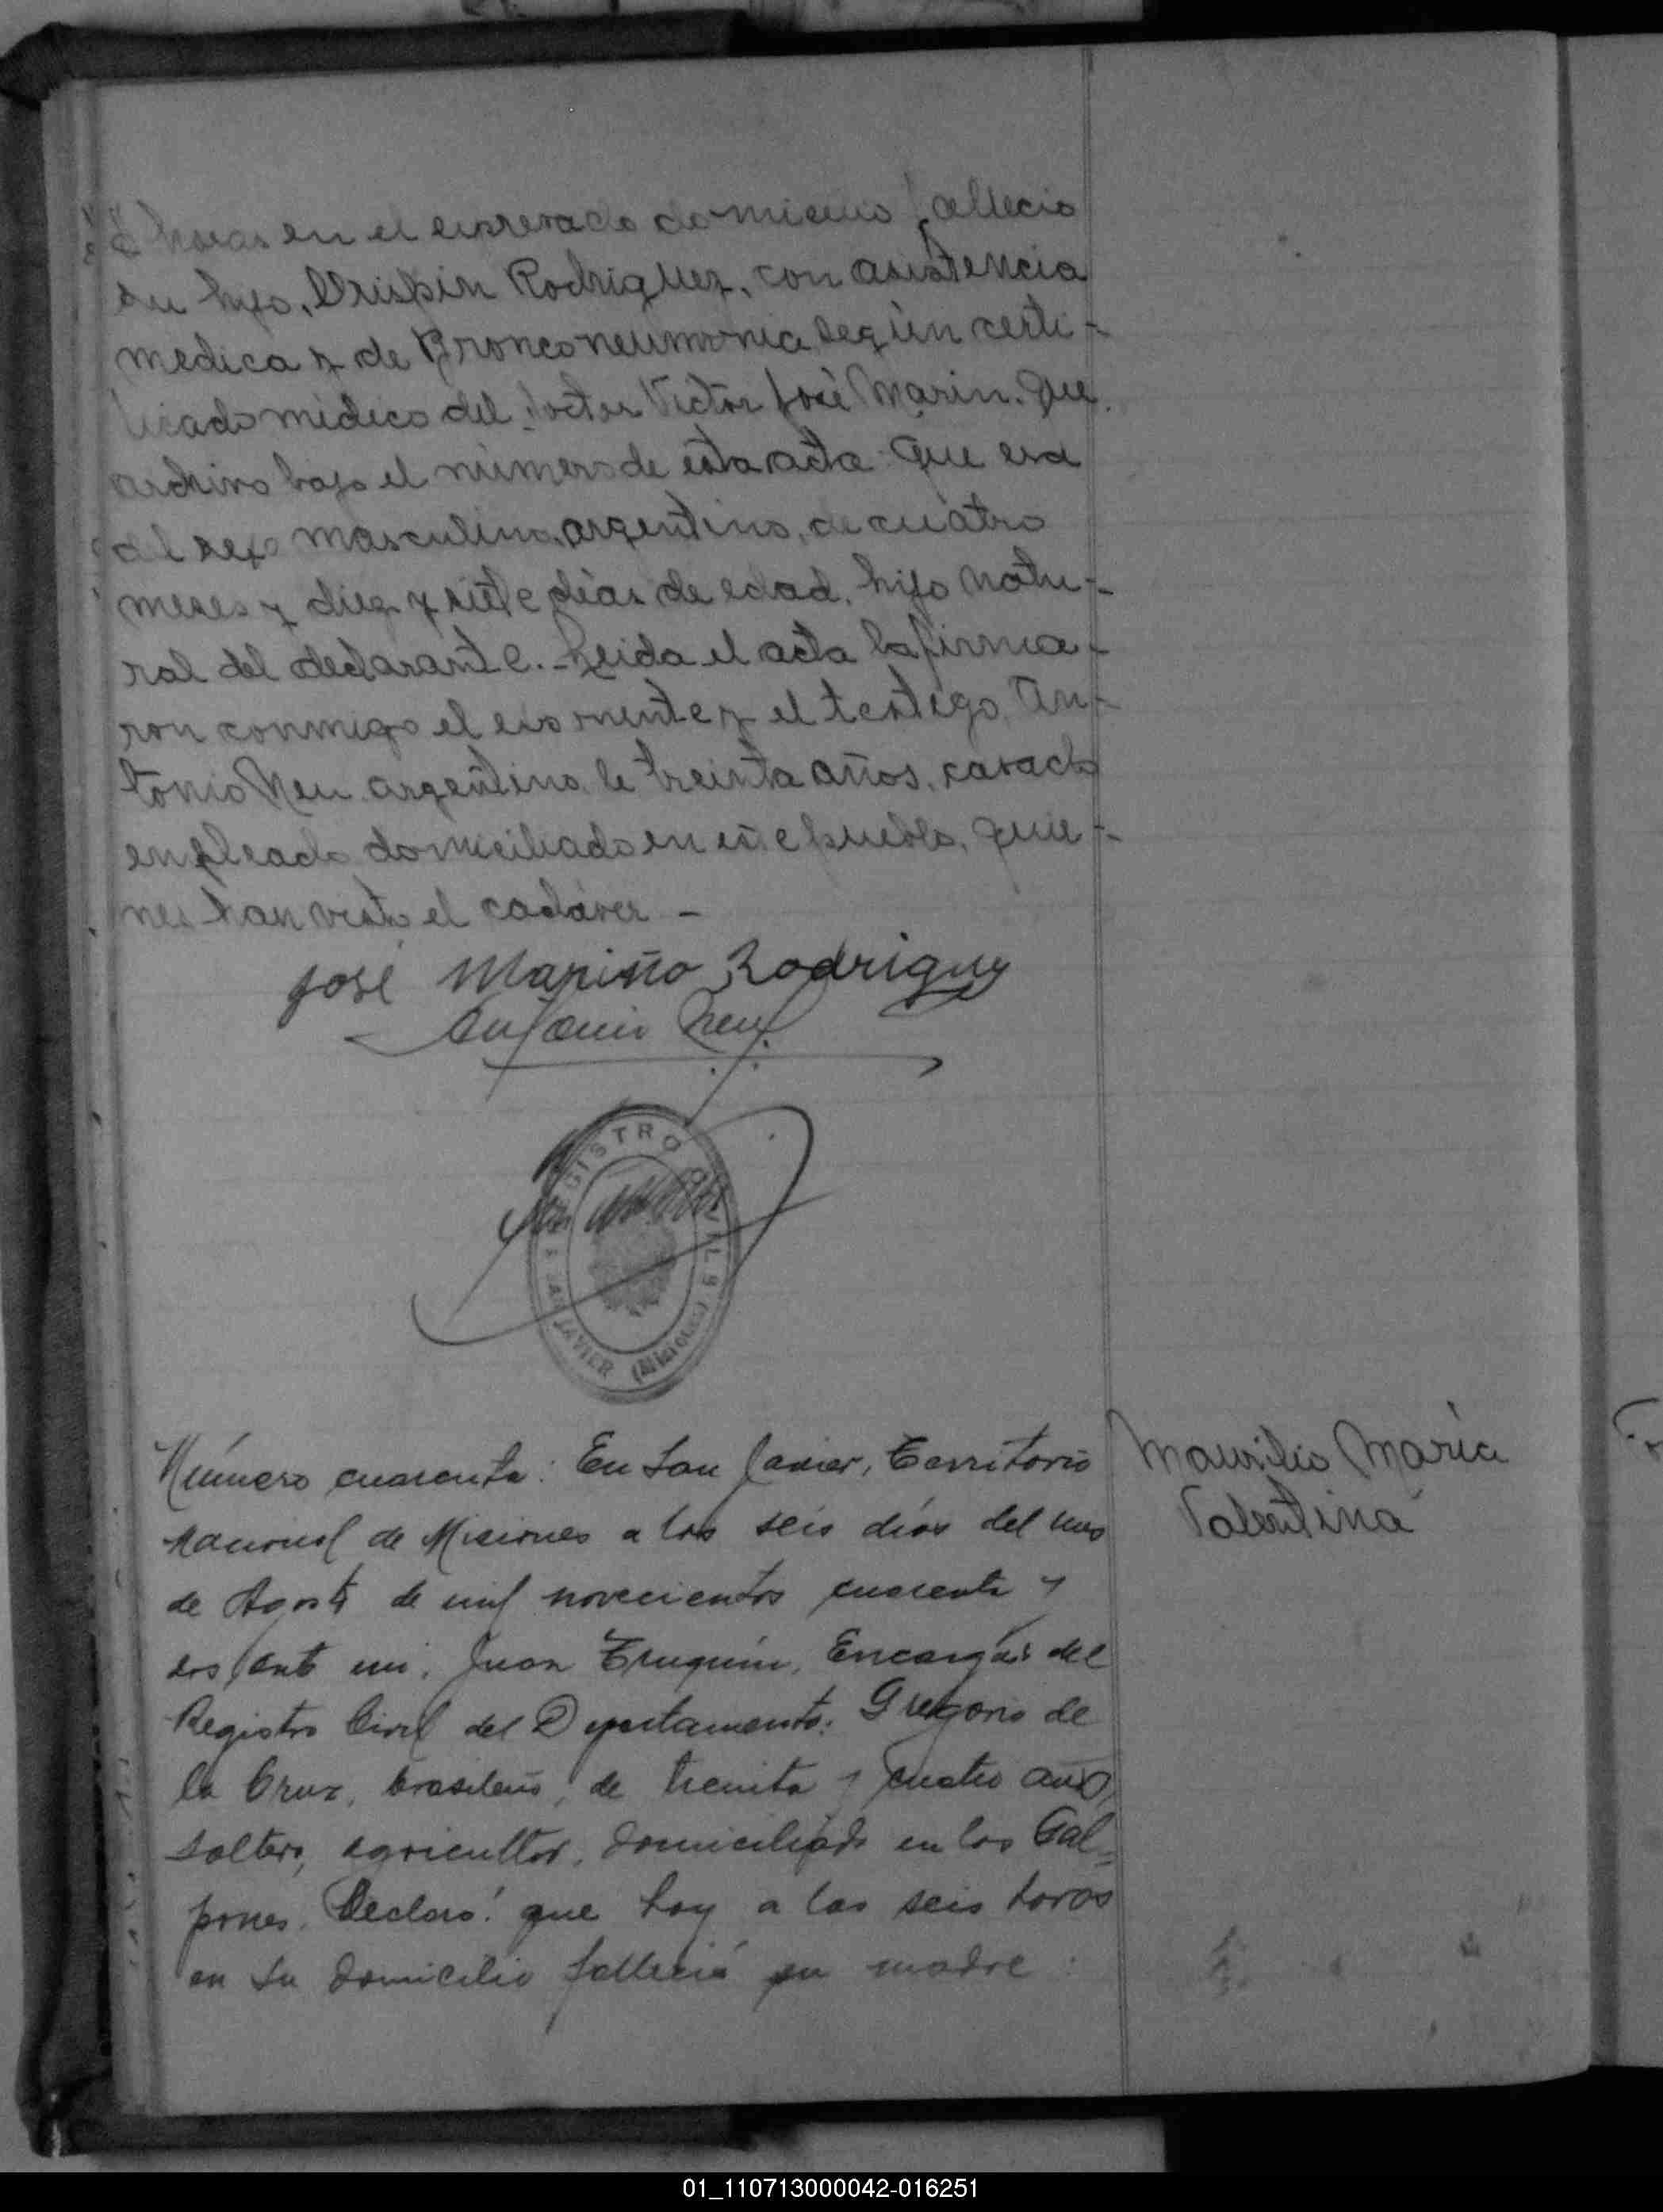 horas en el expresado domicilio falleció
su hijo, Crispin Rodriguez, con asistencia
medica y de Bronconeumonia según certi-
ficado médico del doctor Victor José Marin. Que
archivo bajo el número de esta acta: Que era
del sexo masculino, argentino, de cuatro
meses y diez y siete días de edad, hijo natu-
ral del declarante.- Leida el acta la firma-
ron conmigo el exponente y el testigo, An-
tonio Neu, argentino, de treinta años, casado
empleado domiciliado en este pueblo, quie-
nes han visto el cadáver -
José Mariño Rodriguez
Antonio Neu
REGISTRO CIVIL
SAN JAVIER (Misiones)
Número cuarenta: En San Javier, Territorio Maurilia María
Nacional de Misiones a los seis días del mes Valentina
de Agosto de mil novecientos cuarenta y
dos, ante mi, Juan Encargado del
Registro Civil del Departamento: Gregorio de
la Cruz, brasileño, de treinta y cuatro años,
soltero, agricultor, domiciliado en los Gal=
pones. Declaró: que hoy a las seis horas
en su domicilio falleció su madre:
01_110713000042-016251